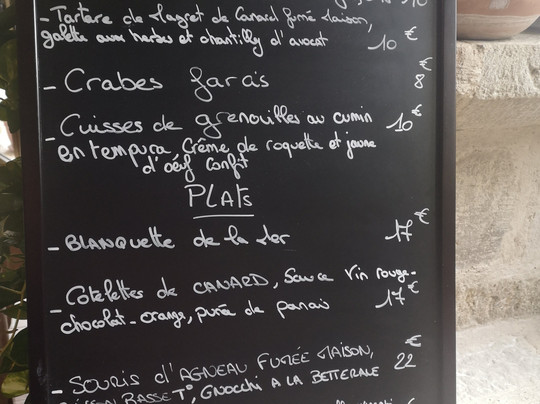 10
- Tartare de Magret de Canard fumé Maison,
galette aux herbes et chantilly d'avocat 10 €
- Crabes farcis 8 €
- Cuisses de grenouilles au cumin 10 €
en tempura Crème de roquette et jaune
d'oeuf confit
PLATS
- BLANQUETTE de la Mer 17 €
- Cotelettes de CANARD, Sauce Vin rouge-
chocolat-orange, purée de panais 17 €
- SOURIS d'AGNEAU FUMÉE MAISON, 22 €
BASSE T°, GNOCCHI A LA BETTERAVE